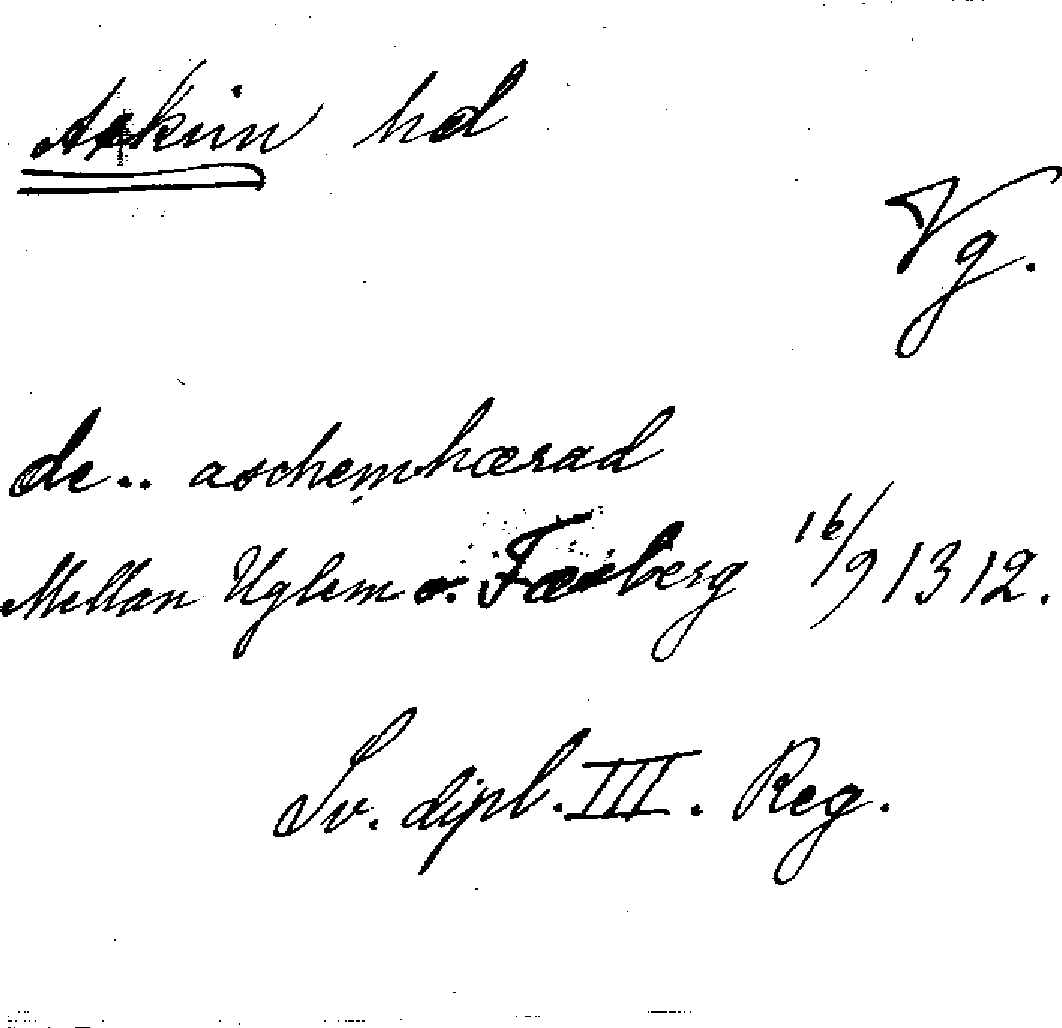 Askim hd
Vg.
de.. aschemhærad
Mellan Uglum o. Færberg 16/9 1312.
Sv. dipl. III. Reg.